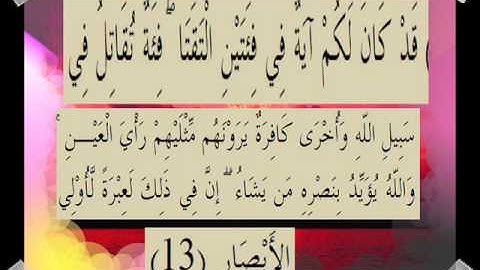 ) قَدْ كَانَ لَكُمْ آيَةٌ فِي فِئَتَيْنِ الْتَقَتَا ۖ فِئَةٌ تُقَاتِلُ فِي
سَبِيلِ اللَّهِ وَأُخْرَى كَافِرَةٌ يَرَوْنَهُم مِّثْلَيْهِمْ رَأْيَ الْعَيْنِ ۚ
وَاللَّهُ يُؤَيِّدُ بِنَصْرِهِ مَن يَشَاءُ ۗ إِنَّ فِي ذَلِكَ لَعِبْرَةً لَّأُوْلِي
الأَبْصَارِ (13)